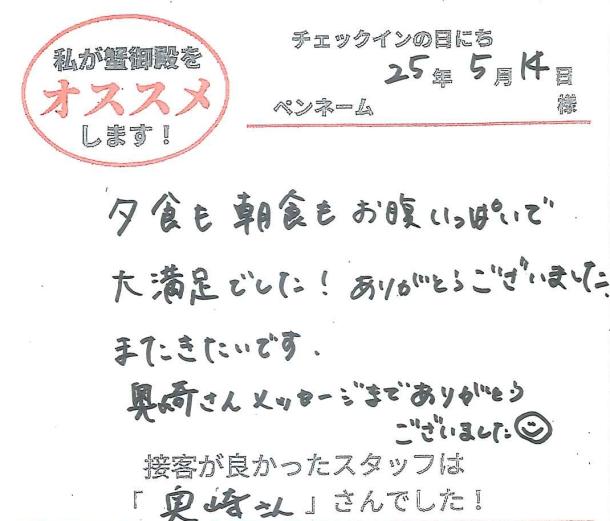 私が蟹御殿を
オススメ
します！
チェックインの日にち
25年5月14日
ペンネーム 様
夕食も朝食もお腹いっぱいで
大満足でした！ありがとうございました
またきたいです.
奥崎さんメッセージまでありがとう
ございました
接客が良かったスタッフは
「奥崎さん」さんでした！